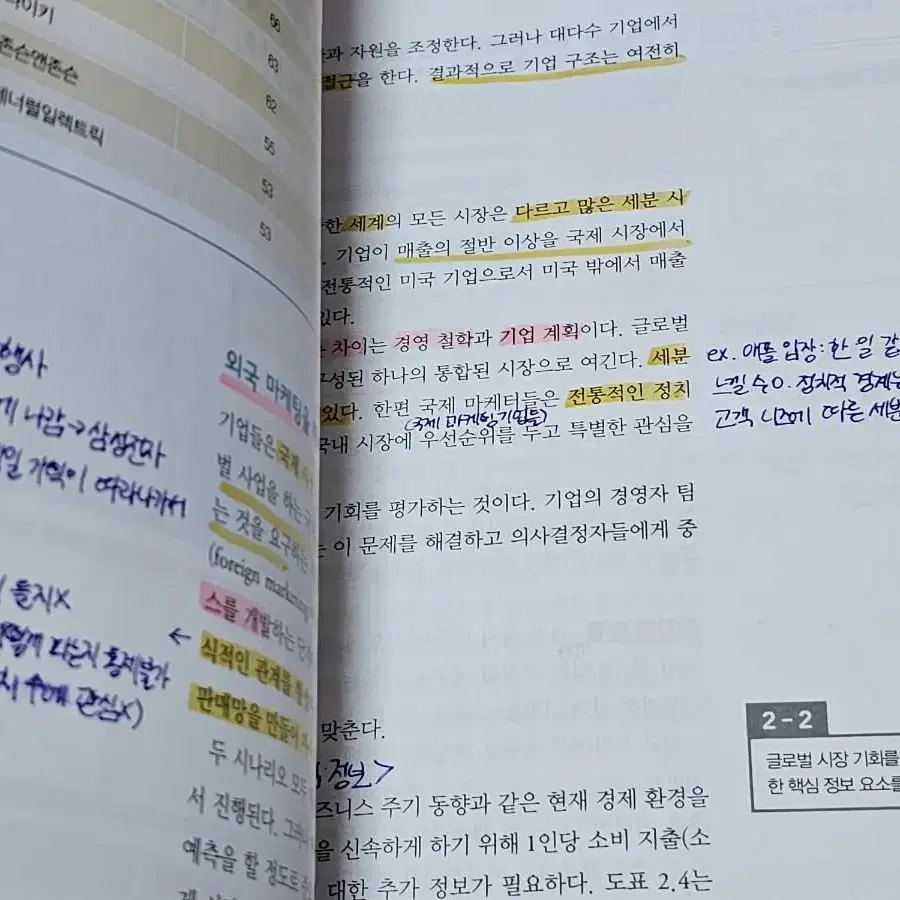 이키
66
존슨앤존슨
63
제너럴일렉트릭
62
55
53
53
행사
나감→삼성전자
기획이 따라나가서
몰지X
통제불가
관심X)
외국 마케팅을
기업들은 국제
벌 사업을 하는
는 것을 요구하는
(foreign marketing
스를 개발하는
← 식적인 관계를
판매망을 만들어
두 시나리오 모두
서 진행된다. 그러나
예측을 할 정도로
과 자원을 조정한다. 그러나 대다수 기업에서
접근을 한다. 결과적으로 기업 구조는 여전히
한 세계의 모든 시장은 다르고 많은 세분 시
기업이 매출의 절반 이상을 국제 시장에서
전통적인 미국 기업으로서 미국 밖에서 매출
있다.
차이는 경영 철학과 기업 계획이다. 글로벌
구성된 하나의 통합된 시장으로 여긴다. 세분
있다. 한편 국제 마케터들은 전통적인 정치
(국제 마케팅기업들)
국내 시장에 우선순위를 두고 특별한 관심을
ex. 애플 입장: 한 일 같
느낄 수 O. 정치적 경계
고객 니즈에 따른 세분
기회를 평가하는 것이다. 기업의 경영자 팀
는 이 문제를 해결하고 의사결정자들에게 중
맞춘다.
정보>
즈니스 주기 동향과 같은 현재 경제 환경을
을 신속하게 하기 위해 1인당 소비 지출(소
대한 추가 정보가 필요하다. 도표 2.4는
2-2
글로벌 시장 기회를
한 핵심 정보 요소를